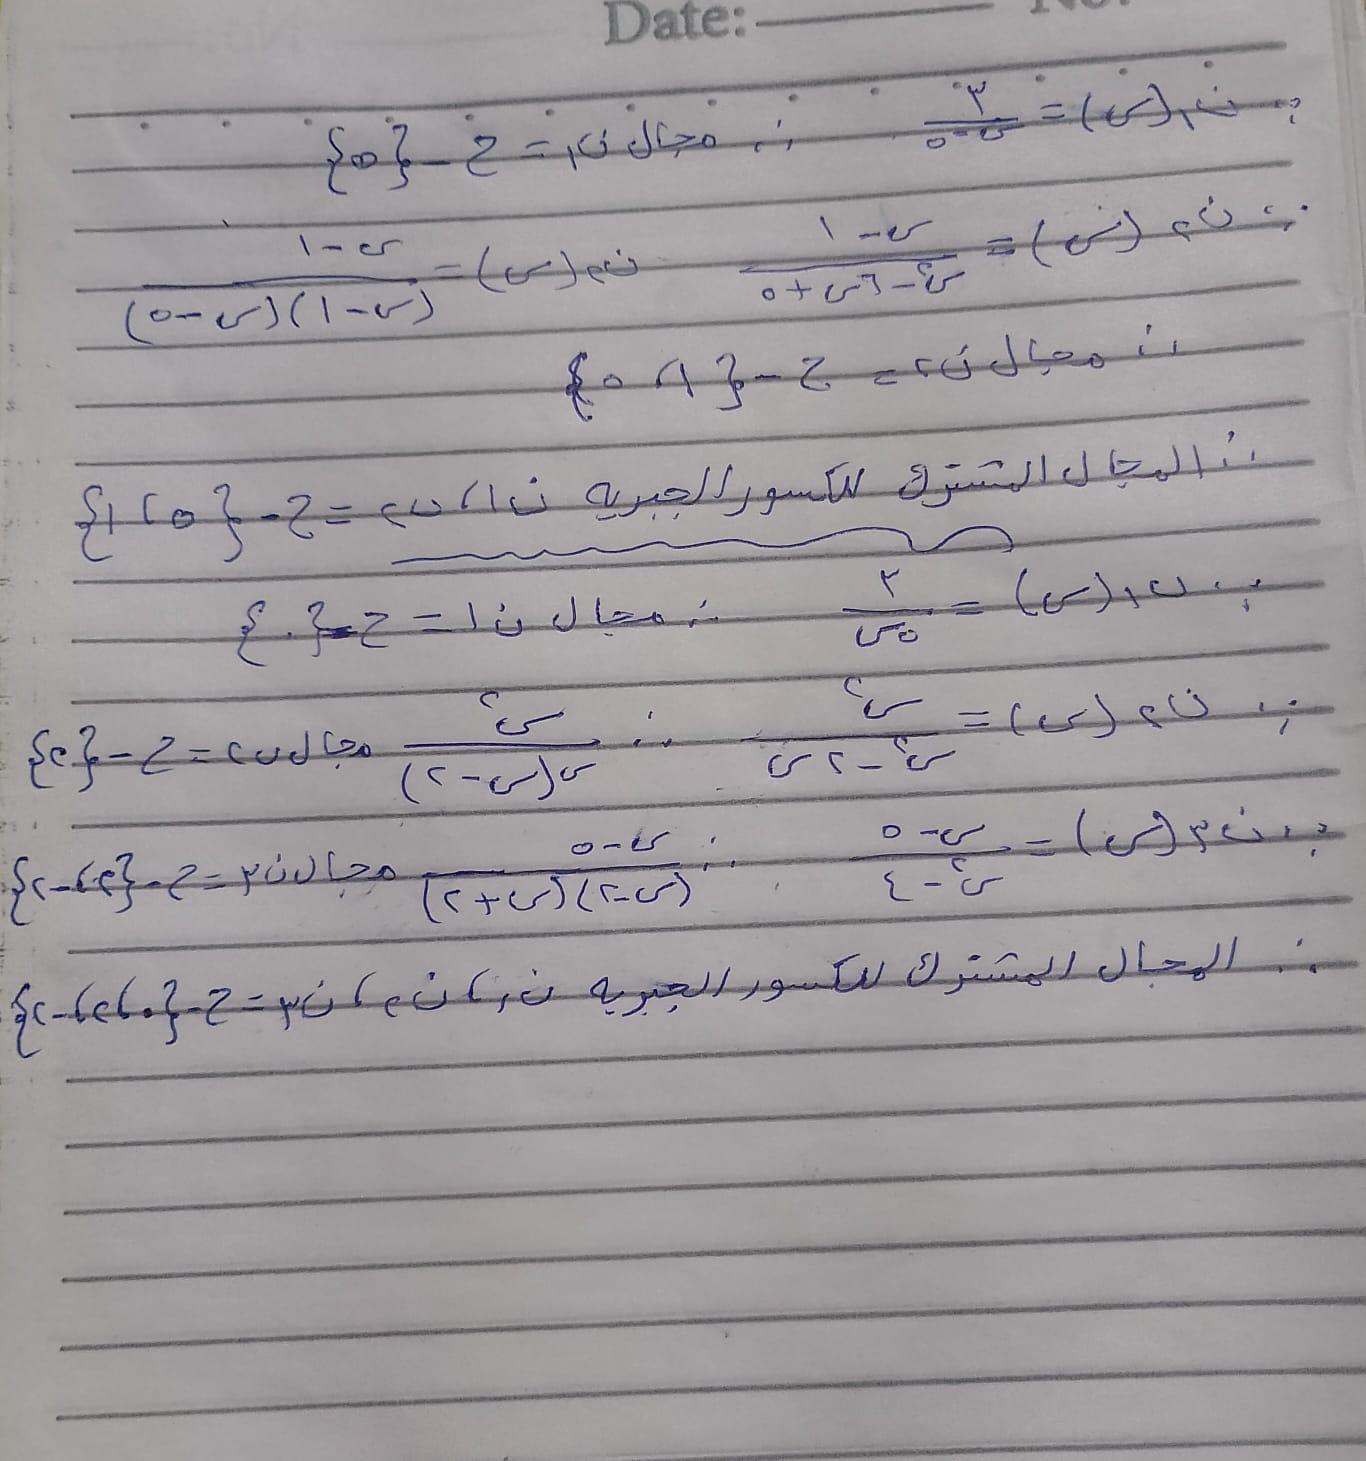 Date: No.
∵ ن١(س) = ٣/(س-٥) ∴ مجال ن١ = ح - {٥}
∵ ن٢(س) = (س-١)/(س²-٦س+٥) ن٢(س) = (س-١)/((س-١)(س-٥))
∴ مجال ن٢ = ح - {١، ٥}
∴ المجال المشترك للكسور الجبريه ن١، ن٢ = ح - {٥، ١}
∵ ن١(س) = ٢/٥س ∴ مجال ن١ = ح - {٠}
∵ ن٢(س) = س²/(س²-٢س) ∴ س²/(س(س-٢)) مجال ن٢ = ح - {٢}
∵ ن٣(س) = (س-٥)/(س²-٤) ∴ (س-٥)/((س-٢)(س+٢)) مجال ن٣ = ح - {٢، -٢}
∴ المجال المشترك للكسور الجبريه ن١، ن٢، ن٣ = ح - {٠، ٢، -٢}